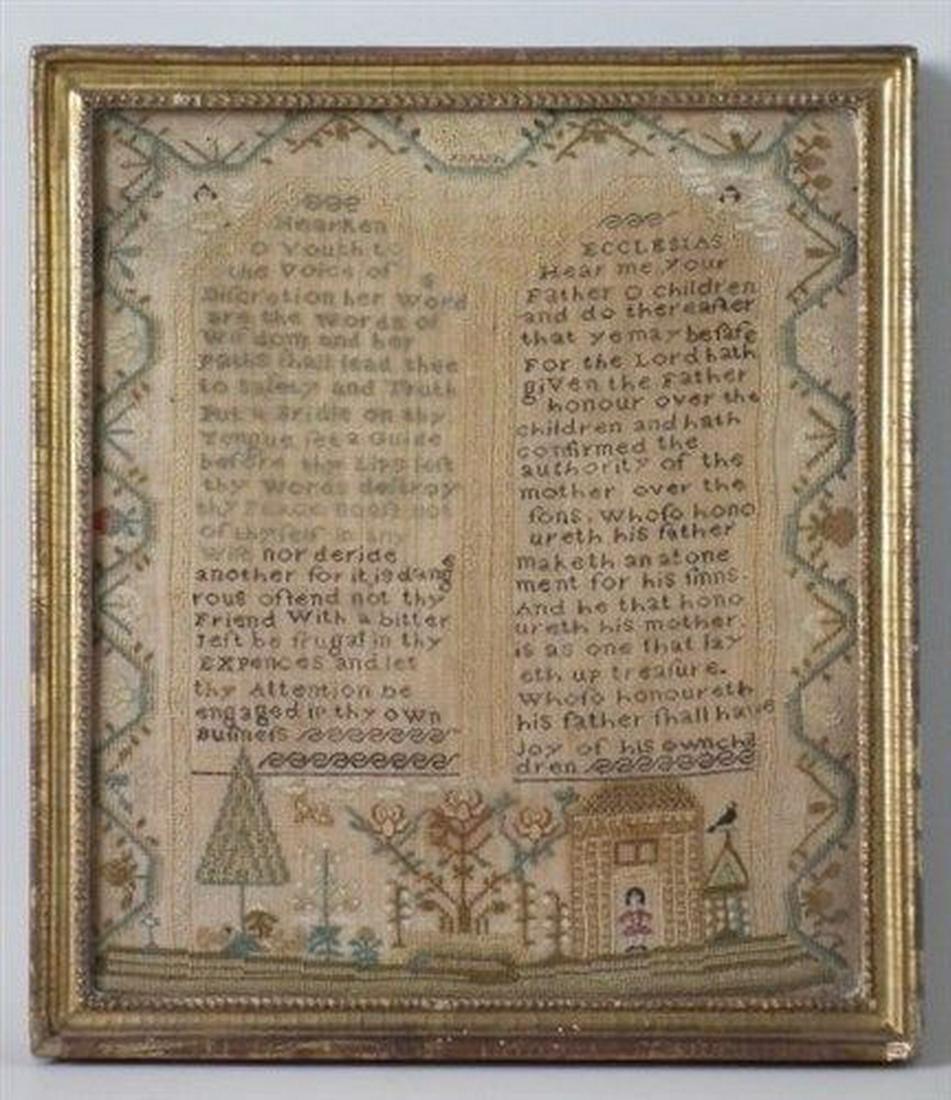 Hearken
O Youth to
the Voice of
Discretion her Words
are the Words of
Wiſdom and her
paths ſhall lead thee
to Safety and Truth
Put a Bridle on thy
Tongue ſet a Guide
before thy Lips leſt
thy Words deſtroy
thy Peace not
of thyſelf in any
Wiſe nor deride
another for it is dange
rous offend not thy
Friend With a bitter
Jeſt be frugal in thy
EXpences and let
thy Attention be
engaged in thy own
Buſineſs
ECCLESIAS
Hear me your
Father O children
and do thereafter
that ye may be ſafe
For the Lord hath
giVen the Father
honour over the
children and hath
confirmed the
authority of the
mother over the
ſons. Whoſo hono
ureth his father
maketh an atone
ment for his ſinns.
And he that hono
ureth his mother.
is as one that lay
eth up treaſure.
Whoſo honoureth
his father ſhall have
Joy of his own chil
dren